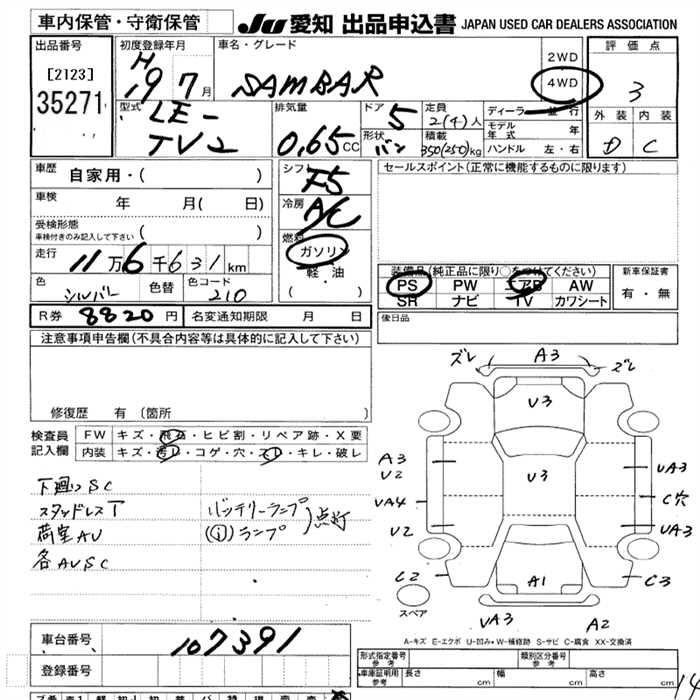 車内保管・守衛保管
JU 愛知 出品申込書 JAPAN USED CAR DEALERS ASSOCIATION
出品番号
[2123]
35271
初度登録年月
H
19 7月
車名・グレード
SAMBAR
2WD
4WD
評価点
3
外装 内装
D C
型式
LE-
TV2
排気量
0.65cc
ドア
5
形状
バン
定員
2(4)人
積載
350(250)kg
ディーラー・並行
モデル年式 年
ハンドル 左・右
車歴
自家用・( )
車検
年 月( 日)
受検形態
車検付きのみ記入して下さい ( )
走行
11万6千631km
色
シルバー
色替
色コード
210
シフト
F5
冷房
A/C
燃料
ガソリン
軽・油
( ・ )
セールスポイント(正常に機能するものに限ります)
装備品(純正品に限り○をつけてください)
PS PW エアB AW
SR ナビ TV カワシート
新車保証書
有・無
R券 8820円 名変通知期限 月 日
後日品
注意事項申告欄(不具合内容等は具体的に記入して下さい)
修復歴 有(箇所 )
検査員記入欄
FW キズ・飛石・ヒビ割・リペア跡・X要
内装 キズ・汚レ・コゲ・穴・スレ・キレ・破レ
下廻りSC
スタッドレスT
荷室AU
各AUSC
バッテリーランプ
(!)ランプ
点灯
ズレ A3 ズレ
U3
A3
U2
U3
UA3
UA4
C穴
U2
UA3
C2
A1
C3
スペア
UA3
A2
A-キズ E-エクボ U-凹み W-補修跡 S-サビ C-腐食 XX-交換済
車台番号
107391
登録番号
形式指定番号
参考
類別区分番号
参考
車庫証明用
参考
長さ cm 幅 cm 高さ cm
14